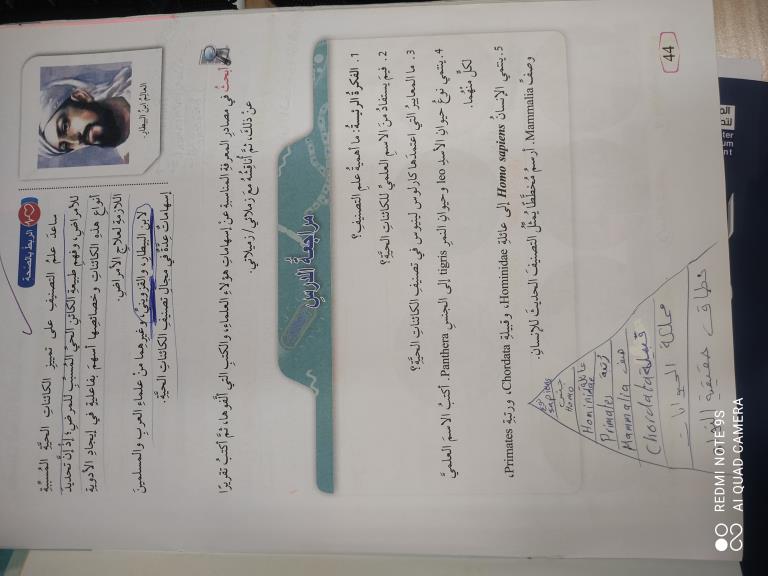 الربط بالصحة
ساعدَ علمُ التصنيفِ على تمييزِ الكائناتِ الحيَّةِ المُسبِّبةِ
للأمراضِ، وفهمِ طبيعةِ الكائنِ الحيِّ المُسبِّبِ للمرضِ؛ إذ إنَّ تحديدَ
أنواعِ هذهِ الكائناتِ وخصائصِها أسهمَ بفاعليةٍ في إيجادِ الأدويةِ
اللازمةِ لعلاجِ الأمراضِ.
لابنِ البيطارِ، والقزوينيِّ، وغيرِهِما منْ علماءِ العربِ والمسلمينَ
إسهاماتٌ عِدَّةٌ في مجالِ تصنيفِ الكائناتِ الحيَّةِ.
العالِمُ ابنُ البيطارِ.
أبحثُ في مصادرِ المعرفةِ المناسبةِ عنْ إسهاماتِ هؤلاءِ العلماءِ، والكتبِ التي ألَّفوها، ثمَّ أكتبُ تقريرًا
عنْ ذلكَ، ثمَّ أُناقِشُهُ معَ زملائي/ زميلاتي.
مراجعةُ الدرسِ
1. الفكرةُ الرئيسةُ: ما أهميةُ علمِ التصنيفِ؟
2. فيمَ يستفادُ منَ الاسمِ العلميِّ للكائناتِ الحيَّةِ؟
3. ما المعاييرُ التي اعتمدَها كارلوس لينيوس في تصنيفِ الكائناتِ الحيَّةِ؟
4. ينتمي نوعُ حيوانِ الأسدِ leo وحيوانِ النمرِ tigris إلى الجنسِ Panthera. أكتبُ الاسمَ العلميَّ
لكلٍّ منْهُما.
5. ينتمي الإنسانُ Homo sapiens إلى عائلةِ Hominidae، وقبيلةِ Chordata، ورتبةِ Primates،
وصفِّ Mammalia. أرسمُ مخطَّطًا يُمثِّلُ التصنيفَ الحديثَ للإنسانِ.
نوع
sapiens
جنس
Homo
عائلة Hominidae
رتبة Primates
صف Mammalia
قبيلة Chordata
مملكة الحيوانات
نطاق حقيقية النواة
44
REDMI NOTE 9S
AI QUAD CAMERA